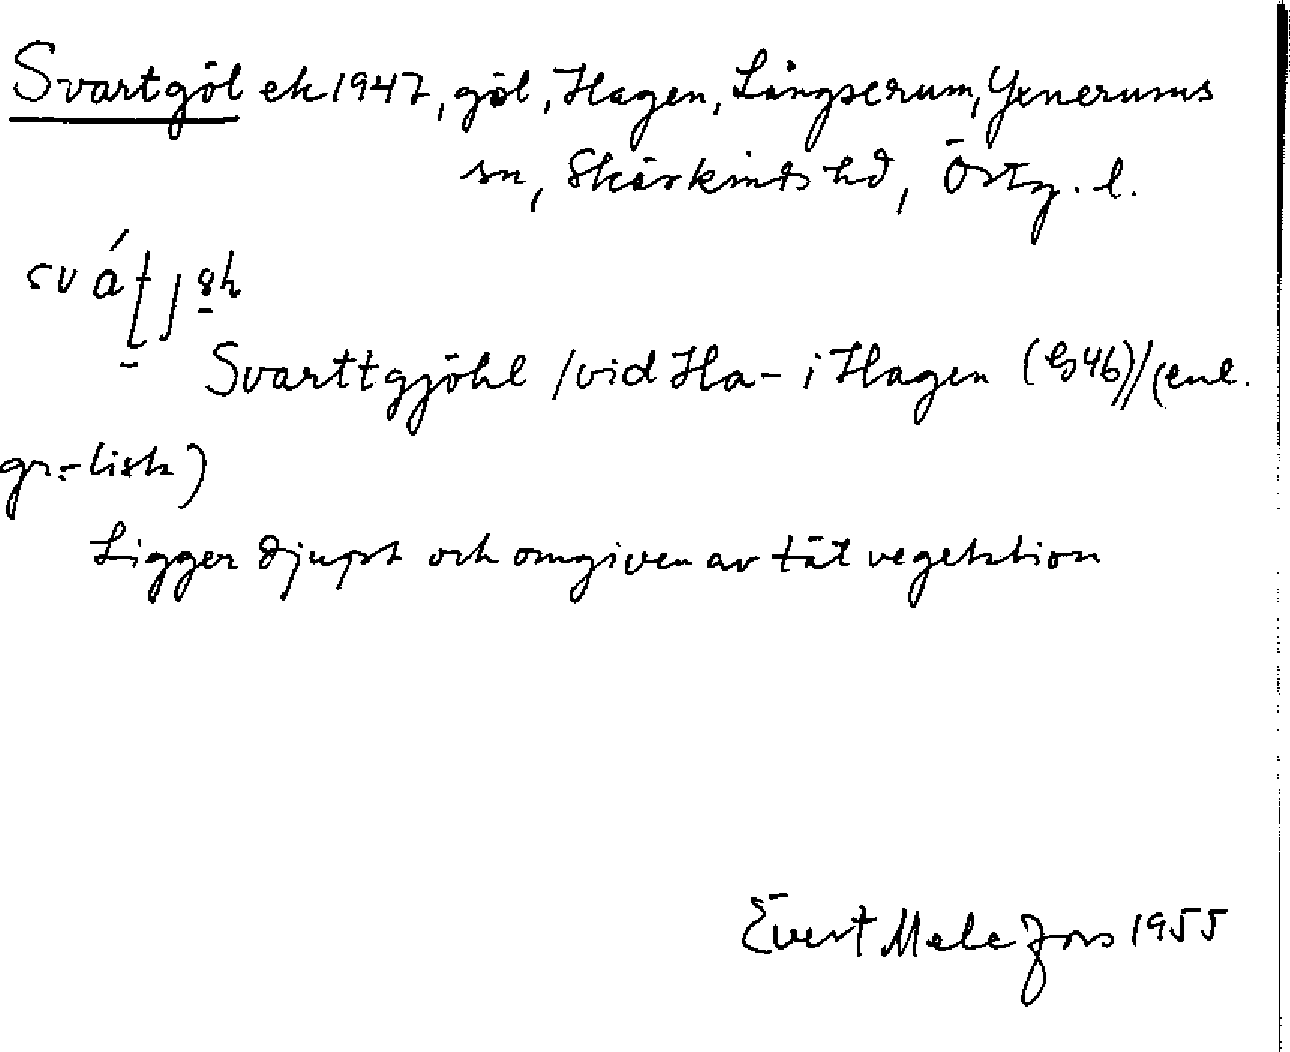 Svartgöl ek 1947, göl, Hagen, Långserum, Yxnerums
sn, Skärkinds hd, Östg. l.
Svarttgjöhl /vid Ha- i Hagen (b46)/(enl.
gr.-lista)
Ligger djupt och omgiven av tät vegetation
Evert Melefors 1955